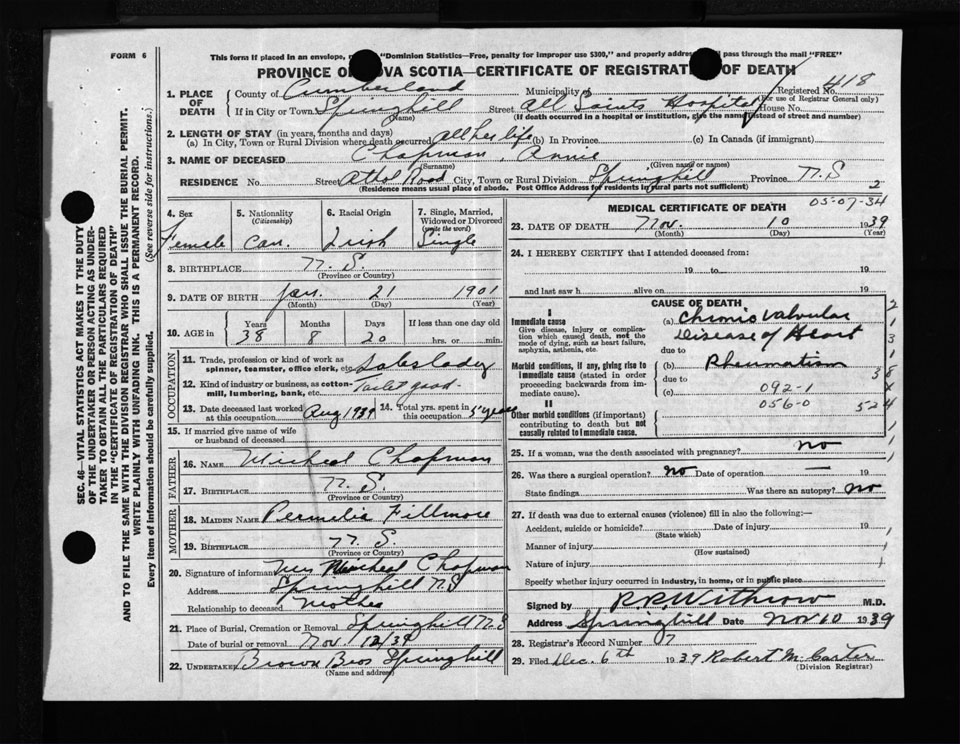 FORM 6
This form if placed in an envelope, "Dominion Statistics—Free, penalty for improper use $300," and properly addres pass through the mail "FREE"
PROVINCE O OVA SCOTIA—CERTIFICATE OF REGISTRAT OF DEATH
1. PLACE OF DEATH County of Cumberland Municipality of Registered No. 418
(For use of Registrar General only)
If in City or Town Springhill Street All Saints Hospital House No.
(Name) (If death occurred in a hospital or institution, give the name instead of street and number)
2. LENGTH OF STAY (in years, months and days)
(a) In City, Town or Rural Division where death occurred all her life (b) In Province (c) In Canada (if immigrant)
3. NAME OF DECEASED Chapman, Annie
(Surname) (Given name or names)
RESIDENCE No. Street Athol Road City, Town or Rural Division Springhill Province N.S
(Residence means usual place of abode. Post Office Address for residents in rural parts not sufficient)
SEC. 46—VITAL STATISTICS ACT MAKES IT THE DUTY OF THE UNDERTAKER OR PERSON ACTING AS UNDERTAKER TO OBTAIN ALL THE PARTICULARS REQUIRED IN THE "CERTIFICATE OF REGISTRATION OF DEATH"
AND TO FILE THE SAME WITH THE DIVISION REGISTRAR WHO SHALL ISSUE THE BURIAL PERMIT.
WRITE PLAINLY WITH UNFADING INK. THIS IS A PERMANENT RECORD.
Every item of information should be carefully supplied. (See reverse side for instructions.)
4. Sex Female
5. Nationality (Citizenship) Can.
6. Racial Origin Irish
7. Single, Married, Widowed or Divorced (write the word) Single
8. BIRTHPLACE N. S.
(Province or Country)
9. DATE OF BIRTH Jan. 21 1901
(Month) (Day) (Year)
10. AGE in Years 38 Months 8 Days 20 If less than one day old hrs. or min.
OCCUPATION
11. Trade, profession or kind of work as spinner, teamster, office clerk, etc. Saleslady
12. Kind of industry or business, as cotton-mill, lumbering, bank, etc. Toilet good
13. Date deceased last worked at this occupation Aug 1939
14. Total yrs. spent in this occupation 5 years
15. If married give name of wife or husband of deceased
FATHER
16. NAME Micheal Chapman
17. BIRTHPLACE N. S.
(Province or Country)
MOTHER
18. MAIDEN NAME Permelia Fillmore
19. BIRTHPLACE N. S.
(Province or Country)
20. Signature of informant Mrs Micheal Chapman
Address Springhill N.S
Relationship to deceased Mother
21. Place of Burial, Cremation or Removal Springhill N.S
Date of burial or removal Nov. 12/39
22. UNDERTAKER Brown Bros Springhill
(Name and address)
2
05-07-34
MEDICAL CERTIFICATE OF DEATH
23. DATE OF DEATH Nov. 10 1939
(Month) (Day) (Year)
24. I HEREBY CERTIFY that I attended deceased from:
19 to 19
and last saw h alive on 19
CAUSE OF DEATH
I
Immediate cause (a) Chronic Valvular
Give disease, injury or complication which caused death, not the mode of dying, such as heart failure, asphyxia, asthenia, etc. Disease of Heart
due to
Morbid conditions, if any, giving rise to immediate cause (stated in order proceeding backwards from immediate cause). (b) Rheumatism
due to 092-1
(c) 056-0
II
Other morbid conditions (if important) contributing to death but not causally related to immediate cause.
524
25. If a woman, was the death associated with pregnancy? no
26. Was there a surgical operation? no Date of operation — 19
State findings Was there an autopsy? no
27. If death was due to external causes (violence) fill in also the following:—
Accident, suicide or homicide? Date of injury 19
(State which)
Manner of injury
(How sustained)
Nature of injury
Specify whether injury occurred in industry, in home, or in public place
Signed by R.R. Withrow M.D.
Address Springhill Date Nov 10 1939
28. Registrar's Record Number 7
29. Filed Dec. 6th 1939 Robert M. Carter
(Division Registrar)